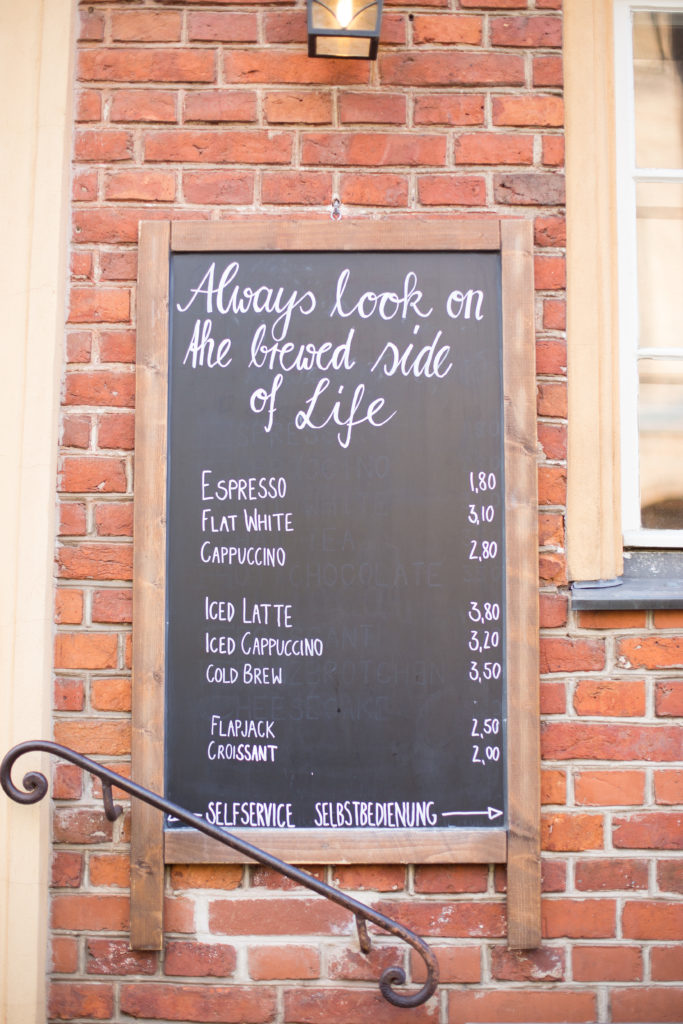 Always look on
the brewed side
of Life
ESPRESSO 1,80
FLAT WHITE 3,10
CAPPUCCINO 2,80
ICED LATTE 3,80
ICED CAPPUCCINO 3,20
COLD BREW 3,50
FLAPJACK 2,50
CROISSANT 2,00
SELFSERVICE SELBSTBEDIENUNG